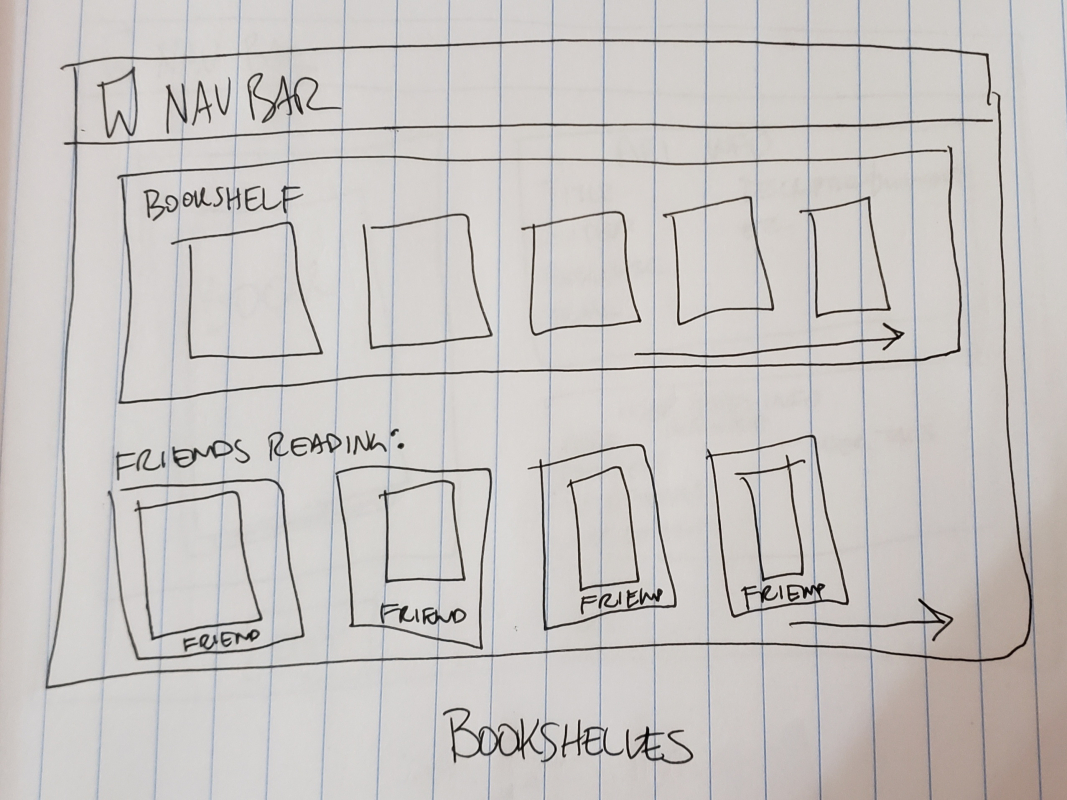 NAV BAR
BOOKSHELF
FRIENDS READING:
FRIEND
FRIEND
FRIEND
FRIEND
BOOKSHELVES